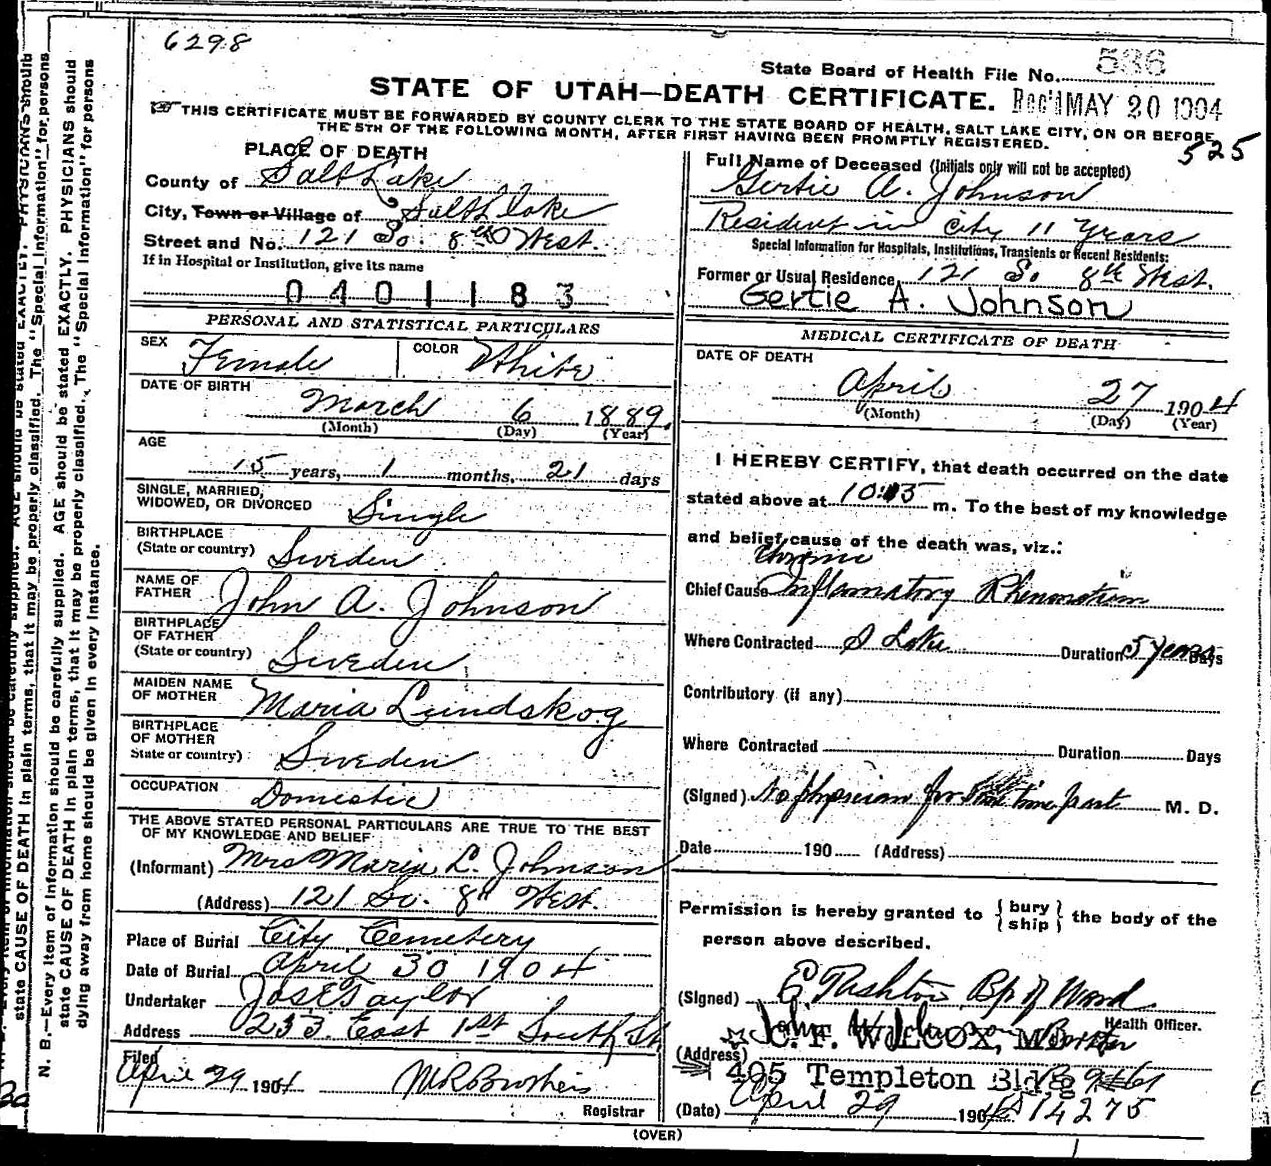 6298
State Board of Health File No. 536
STATE OF UTAH—DEATH CERTIFICATE. Rec'd MAY 20 1904
THIS CERTIFICATE MUST BE FORWARDED BY COUNTY CLERK TO THE STATE BOARD OF HEALTH, SALT LAKE CITY, ON OR BEFORE
THE 5TH OF THE FOLLOWING MONTH, AFTER FIRST HAVING BEEN PROMPTLY REGISTERED.
525
PLACE OF DEATH
County of Salt Lake
City, Town or Village of Salt Lake
Street and No. 121 So. 8th West.
If in Hospital or Institution, give its name
0401183
Full Name of Deceased (Initials only will not be accepted)
Gertie A. Johnson
Resident in city 11 Years
Special Information for Hospitals, Institutions, Transients or Recent Residents:
Former or Usual Residence 121 So 8th West.
Gertie A. Johnson
PERSONAL AND STATISTICAL PARTICULARS
SEX Female COLOR White
DATE OF BIRTH
March 6 1889.
(Month) (Day) (Year)
AGE
15 years, 1 months, 21 days
SINGLE, MARRIED,
WIDOWED, OR DIVORCED Single
BIRTHPLACE
(State or country) Sweden
NAME OF
FATHER John A. Johnson
BIRTHPLACE
OF FATHER
(State or country) Sweden
MAIDEN NAME
OF MOTHER Maria Lundskog
BIRTHPLACE
OF MOTHER
State or country) Sweden
OCCUPATION Domestic
THE ABOVE STATED PERSONAL PARTICULARS ARE TRUE TO THE BEST
OF MY KNOWLEDGE AND BELIEF
(Informant) Mrs Maria L. Johnson
(Address) 121 So. 8th West.
Place of Burial City Cemetery
Date of Burial April 30 1904
Undertaker Jos E Taylor
Address 253 East 1st South St
Filed
April 29 1904
Registrar
MEDICAL CERTIFICATE OF DEATH
DATE OF DEATH
April 27 1904
(Month) (Day) (Year)
I HEREBY CERTIFY, that death occurred on the date
stated above at 10:15 m. To the best of my knowledge
and belief cause of the death was, viz.:
Chronic
Chief Cause Inflamatory Rheumatism
Where Contracted S Lake Duration 5 years Days
Contributory (if any)
Where Contracted Duration Days
(Signed) No physician for time past M. D.
Date 190 (Address)
Permission is hereby granted to { bury ship } the body of the
person above described.
(Signed) Bp of Ward
Health Officer.
C. F. WILCOX, M.D.
(Address)
405 Templeton Bldg
(Date) April 29 1904 14275
(OVER)
N. B.—Every item of information should be carefully supplied. AGE should be stated EXACTLY. PHYSICIANS should
state CAUSE OF DEATH in plain terms, that it may be properly classified. The "Special Information" for persons
dying away from home should be given in every instance.
state CAUSE OF DEATH in plain terms, that it may be properly classified. The "Special Information" for persons